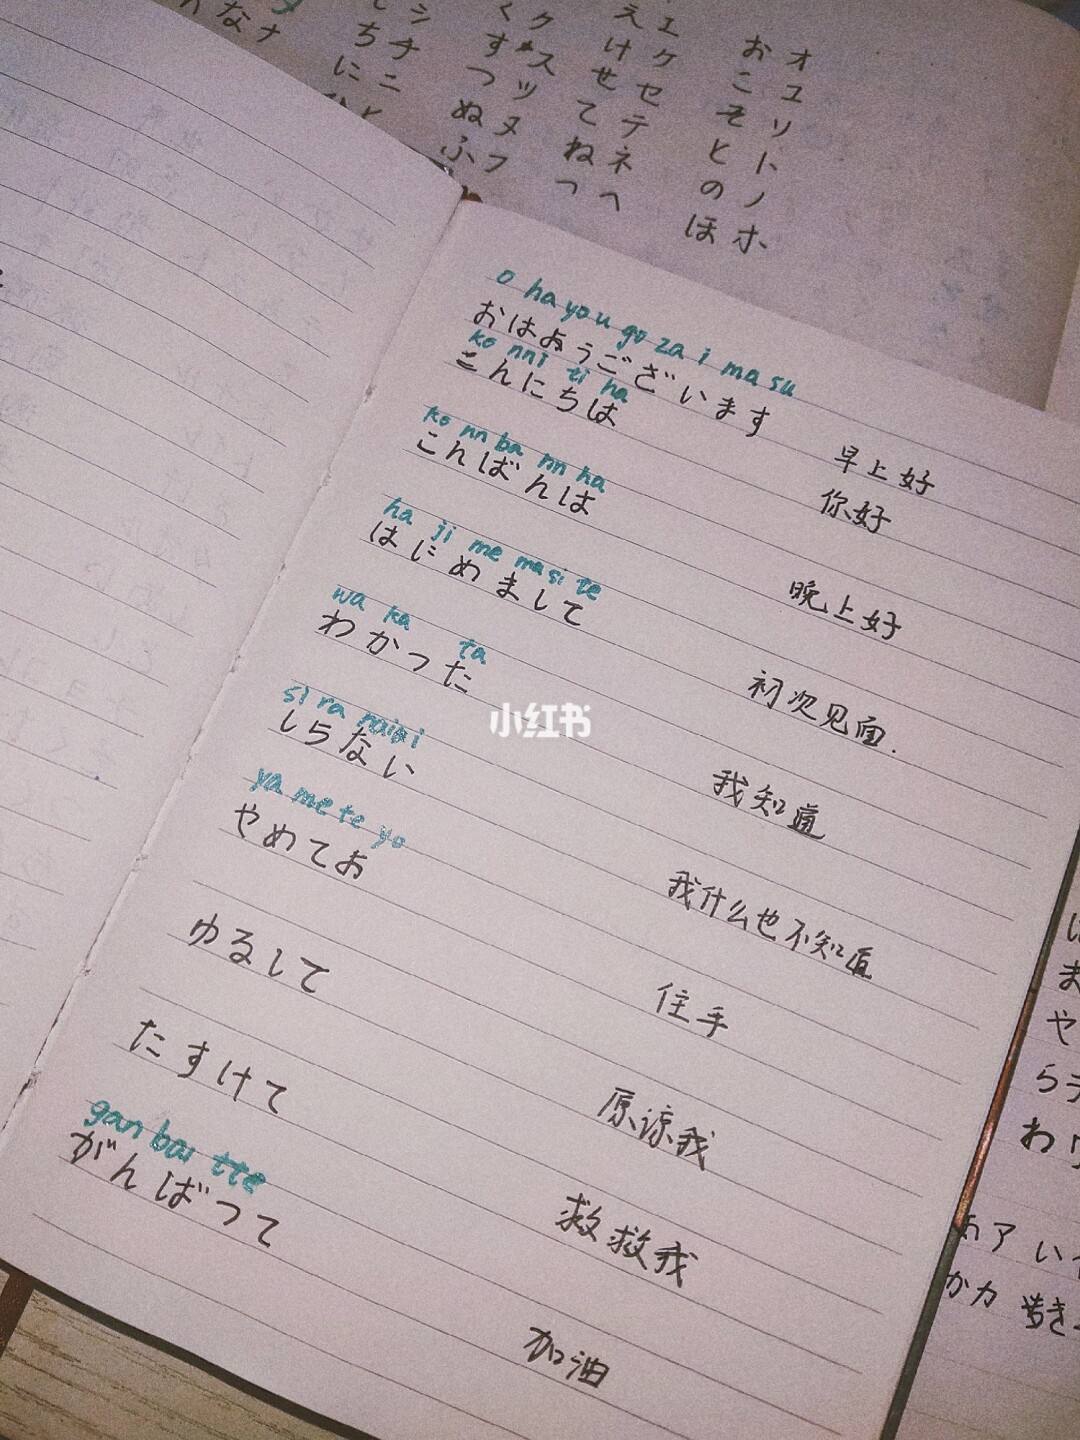 オ エ ク シ
お え く し
ユ ケ ス チ ナ
こ け す ち な
ソ セ ツ ニ
そ せ つ に
ト テ ヌ
と て ぬ
ノ ネ フ
の ね ふ
ホ ヘ
ほ つ
o ha yo u go za i ma su
おはようございます 早上好
ko nni ti ha
こんにちは 你好
ko nn ba nn ha
こんばんは 晚上好
ha ji me ma si te
はじめまして 初次见面.
wa ka ta
わかった 我知道
si ra nai i
しらない 我什么也不知道
ya me te yo
やめてお 住手
ゆるして 原谅我
たすけて 救救我
gan ba tte
がんばって 加油
小红书
ま
や
ら
わ
あア い
かカ き